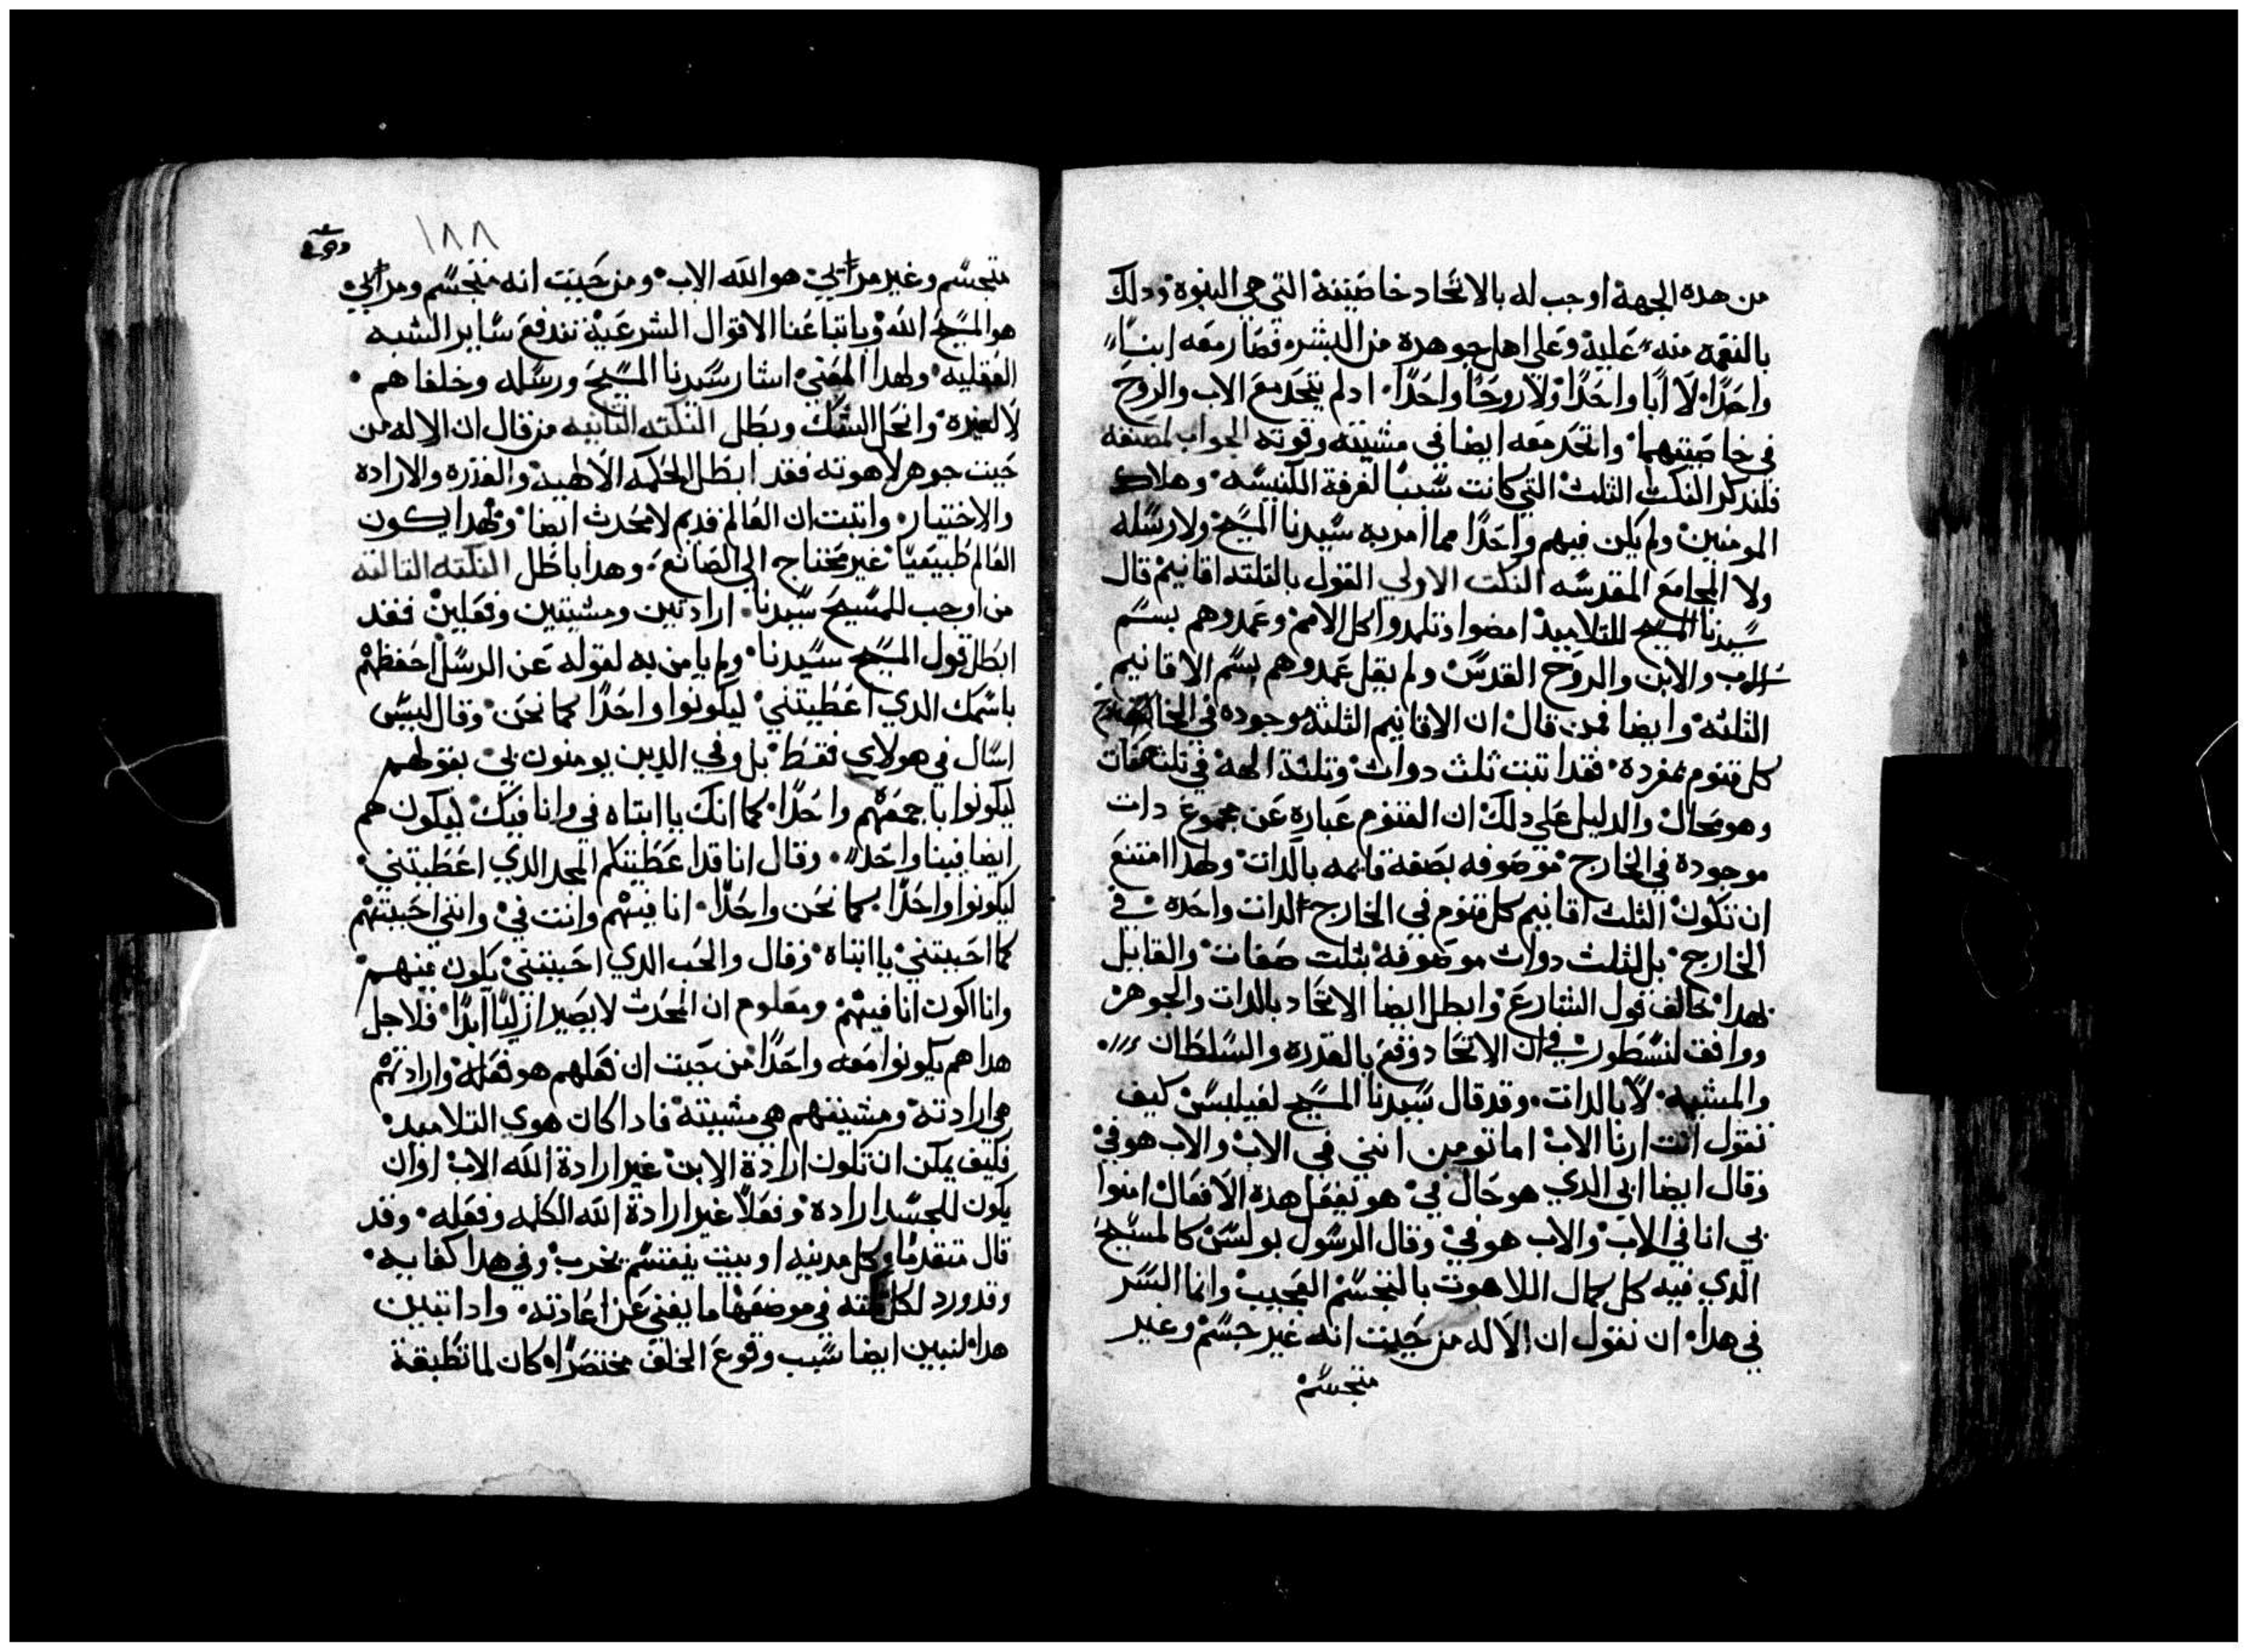 من هده الجهة اوجب له بالاتحاد خاصيته التي هي البنوة ودلك
بالنعمة منه عليه وعلى اهل جوهره من البشر فصار معه ابناً
واحدًا لا ابًا واحدًا ولا روحًا واحدًا ادلم يتحد مع الاب والروح
في خاصيتهما واتحد معه ايضا في مشيته وقوته الجواب لمصنفه
فلندكر النكت الثلث التي كانت سببًا لفرقة الكنيسه وهلاك
المومنين ولم يكن فيهم واحدًا مما امر به سيدنا المسيح ولا رسله
ولا المجامع المقدسه النكت الاولي القول بالثلثه اقانيم قال
سيدنا المسيح للتلاميد امضوا وتلمدوا كل الامم وعمدوهم بسم
الاب والابن والروح القدس ولم يقل عمدوهم بسم الاقانيم
الثلثه وايضا فمن قال ان الاقانيم الثلثه موجوده في الخارج
كل قنوم بمفرده فقد اتبت ثلث دوات وثلثة الهة في ثلث صفات
وهو محال والدليل على دلك ان القنوم عبارة عن مجموع دات
موجودة في الخارج موصوفه بصفة قايمه بالدات ولهدا امتنع
ان تكون الثلث اقانيم كل قنوم في الخارج الدات واحده في
الخارج بل لثلث دوات موصوفه بثلث صفات والقايل
بهدا خالف قول الشارع وابطل ايضا الاتحاد بالدات والجوهر
ووافق لنسطور في ان الاتحاد وقع بالقدره والسلطان
والمشيه لا بالدات وقد قال سيدنا المسيح لفيلبس كيف
تقول انت ارنا الاب اما تومن انني في الاب والاب هو في
وقال ايضا ابي الدي هو حال في هو يفعل هده الافعال امنوا
بي انا في الاب والاب هو في وقال الرسول بولس كالمسيح
الدي فيه كل كمال اللاهوت بالتجسم العجيب وانما السر
في هدا ان نقول ان الاله من حيت انه غير جسم وغير
متجسم
١٨٨
متجسم وغير مرايي هو الله الاب ومن حيت انه متجسم ومرايي
هو المسيح الله وباتباعنا الاقوال الشرعية تندفع ساير الشبه
العقليه ولهدا المعنى اشار سيدنا المسيح ورسله وخلفاهم
لا لغيره وانحل الشك وبطل النكته التانيه من قال ان الاله من
حيت جوهر لاهوته فقد ابطل الحكمه الالهية والقدره والارادة
والاختيار واتبت ان العالم قديم لا محدث ايضا وبهدا يكون
العالم طبيعيًا غير محتاج الى الصانع وهدا باطل النكته التالته
من اوجب للمسيح سيدنا ارادتين ومشيتين وفعلين فقد
ابطل قول المسيح سيدنا ولم يامن به لقوله عن الرسل احفظهم
باسمك الدي اعطيتني ليكونوا واحدًا كما نحن وقال ليس
اسال في هولاي فقط بل وفي الدين يومنون بي بقولهم
ليكونوا باجمعهم واحدًا كما انك يا ابتاه في وانا فيك ليكون هم
ايضا فينا واحدًا وقال انا قد اعطيتكم المجد الدي اعطيتني
ليكونوا واحدًا كما نحن واحدًا انا فيهم وانت في وانني احببتهم
كما احببتني يا ابتاه وقال والحب الدي احببتني يكون فيهم
وانا اكون انا فيهم ومعلوم ان المحدث لا يصير ازليًا ابدًا فلاجل
هدا هم يكونوا معه واحدًا من حيت ان فعلهم هو فعله وارادتهم
هي ارادته ومشيتهم هي مشيته فادا كان هوى التلاميد
فكيف يمكن ان تكون ارادة الابن غير ارادة الله الاب او ان
يكون للجسد ارادة وفعلًا غير ارادة الله الكلمه وفعله وقد
قال متقدمًا كل مدينه او بيت ينقسم يخرب وفي هدا كفايه
وقد ورد لكل نكته في موضعها ما يغني عن اعادته وادا تبين
هدا لنبين ايضا سبب وقوع الخلف مختصرًا كان لما تطبقة